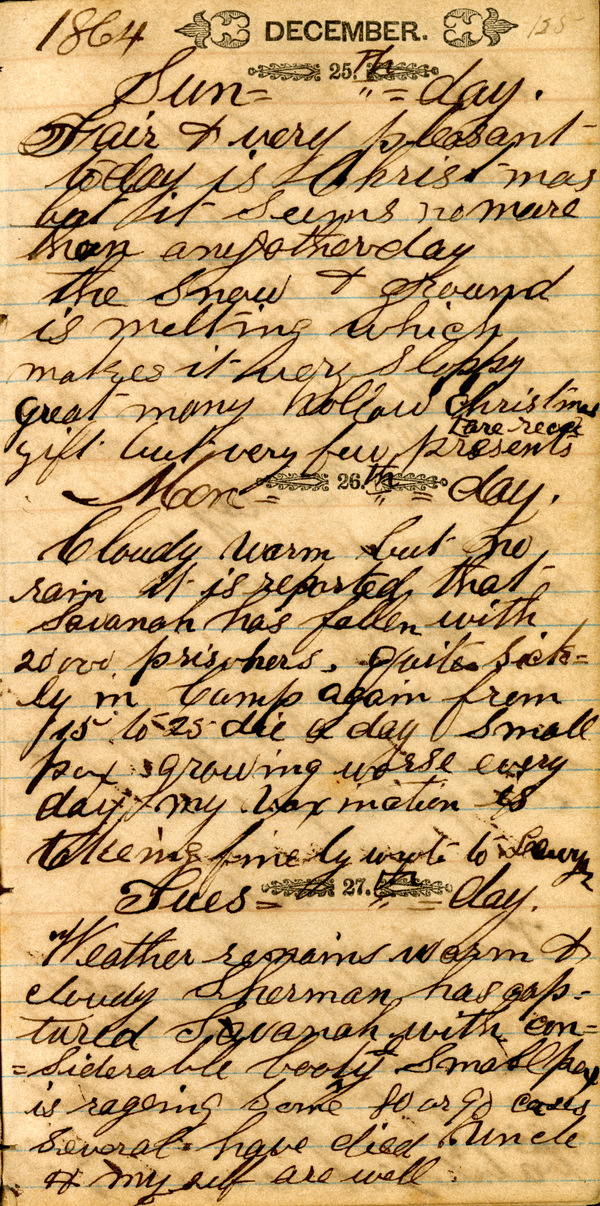 1864 DECEMBER. 155
25.th
Sun= " = day.
Fair & very pleasant
to day is Christmas
but it seems no more
than any other day
the snow & ground
is melting which
makes it very sloppy
great many hollow Christmas
gift but very few presents
are recd
26.th
Mon = " = day.
Cloudy warm but no
rain it is reported that
Savanah has fallen with
20000 prisoners. quite sick=
ly in Camp again from
15 to 25 die a day Small
pox growing worse every
day my vaxination is
takeing finely wrote to
27.th
Tues = " = day.
Weather remains warm &
cloudy Sherman has cap=
tured Savanah with con=
=siderable booty Small pox
is rageing some 80 or 90 cases
several have died Uncle
& my self are well.